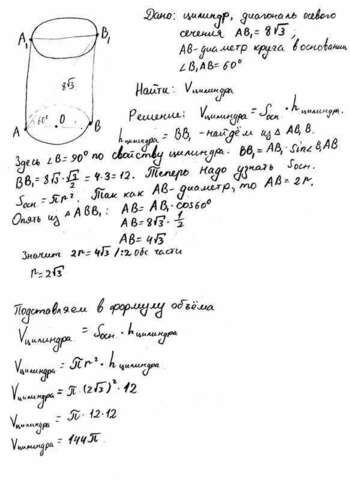 Дано: цилиндр, диагональ осевого
сечения AB₁ = 8√3,
AB - диаметр круга в основании
∠B₁AB = 60°
Найти: Vцилиндра
Решение: Vцилиндра = Sосн. · hцилиндра.
hцилиндра = BB₁ - найдём из △AB₁B.
A₁
B₁
8√3
60°
A
O
B
Здесь ∠B = 90° по свойству цилиндра. BB₁ = AB₁ · Sin∠B₁AB
BB₁ = 8√3 · √3/2 = 4·3 = 12. Теперь надо узнать Sосн.
Sосн = πr². Так как AB - диаметр, то AB = 2r.
Опять из △ABB₁: AB = AB₁ · cos60°
AB = 8√3 · 1/2
AB = 4√3
Значит 2r = 4√3 /:2 обе части
r = 2√3
Подставляем в формулу объёма
Vцилиндра = Sосн · hцилиндра
Vцилиндра = πr² · hцилиндра
Vцилиндра = π · (2√3)² · 12
Vцилиндра = π · 12 · 12
Vцилиндра = 144π